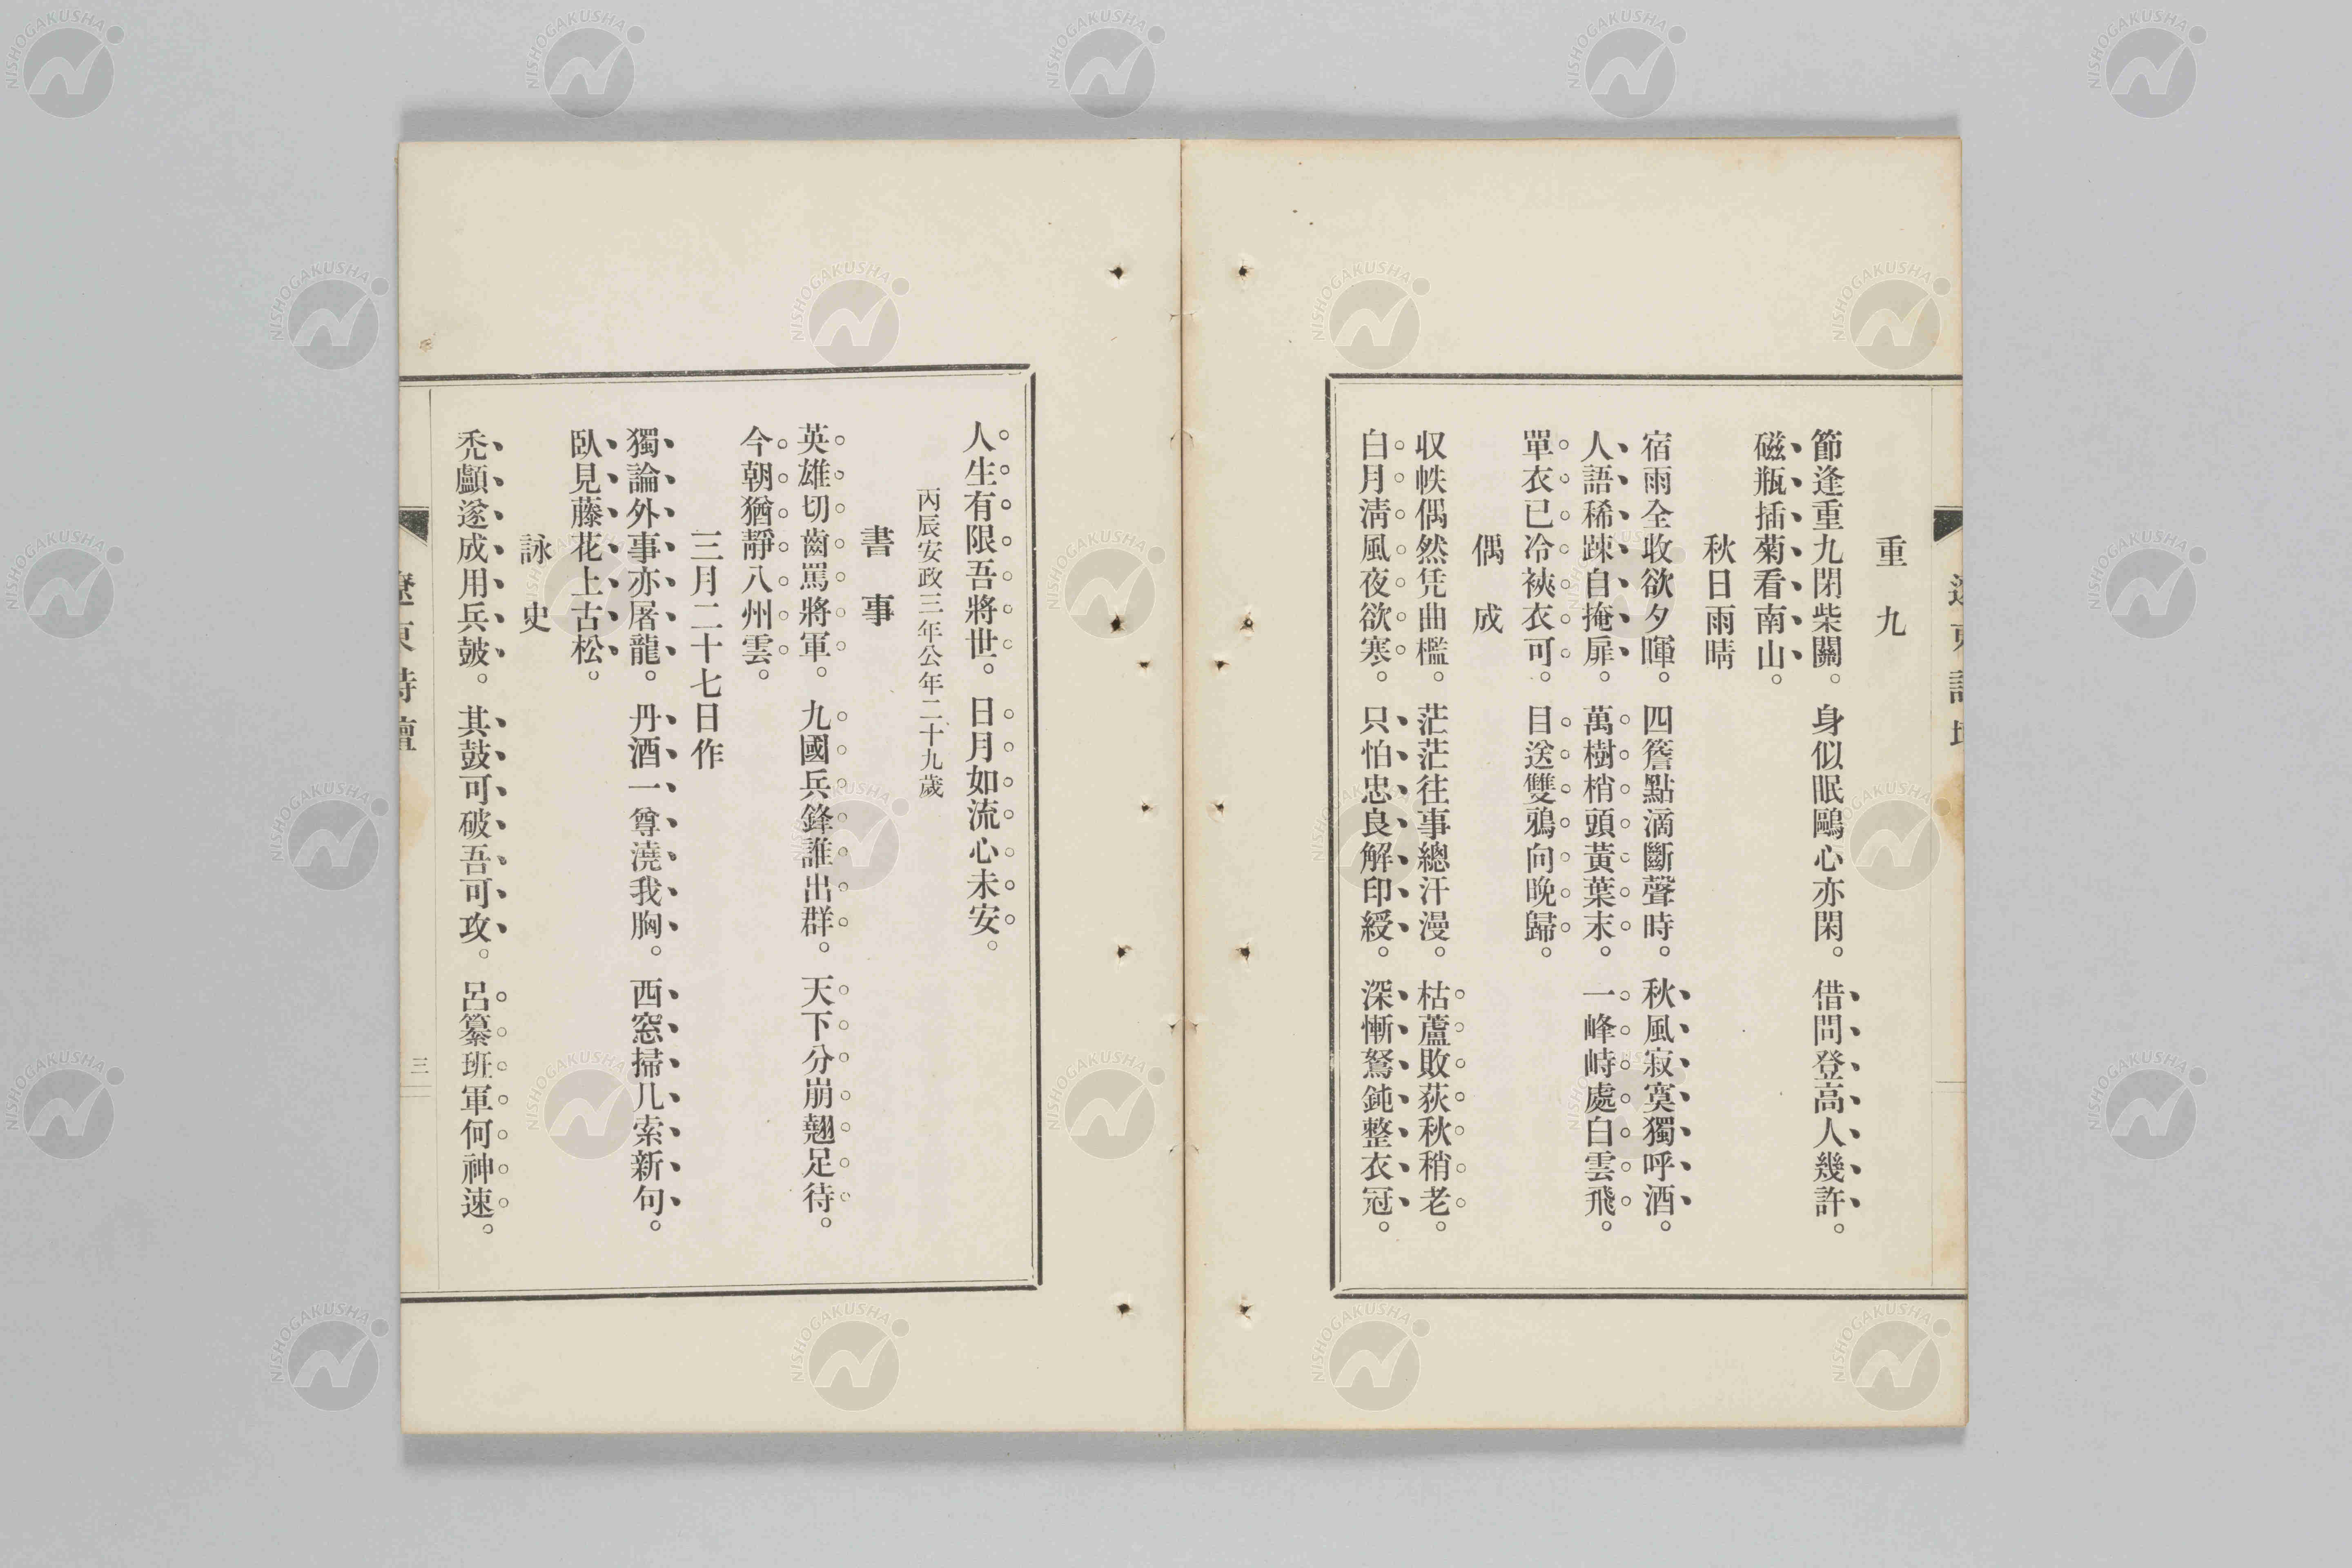 重九
節逢重九閉柴關。身似眠鷗心亦閑。借問登高人幾許。
磁瓶插菊看南山。
秋日雨晴
宿雨全收欲夕暉。四簷點滴斷聲時。秋風寂寞獨呼酒。
人語稀踈自掩扉。萬樹梢頭黃葉末。一峰峙處白雲飛。
單衣已冷裌衣可。目送雙鴉向晚歸。
偶成
収帙偶然凭曲檻。茫茫往事總汗漫。枯蘆敗荻秋稍老。
白月淸風夜欲寒。只怕忠良解印綬。深慚駑鈍整衣冠。
人生有限吾將世。日月如流心未安。
丙辰安政三年公年二十九歲
書事
英雄切齒罵將軍。九國兵鋒誰出群。天下分崩翹足待。
今朝猶靜八州雲。
三月二十七日作
獨論外事亦屠龍。丹酒一尊澆我胸。西窓掃几索新句。
臥見藤花上古松。
詠史
禿顱遂成用兵皷。其鼓可破吾可攻。呂纂班軍何神速。
三
NISHOGAKUSHA